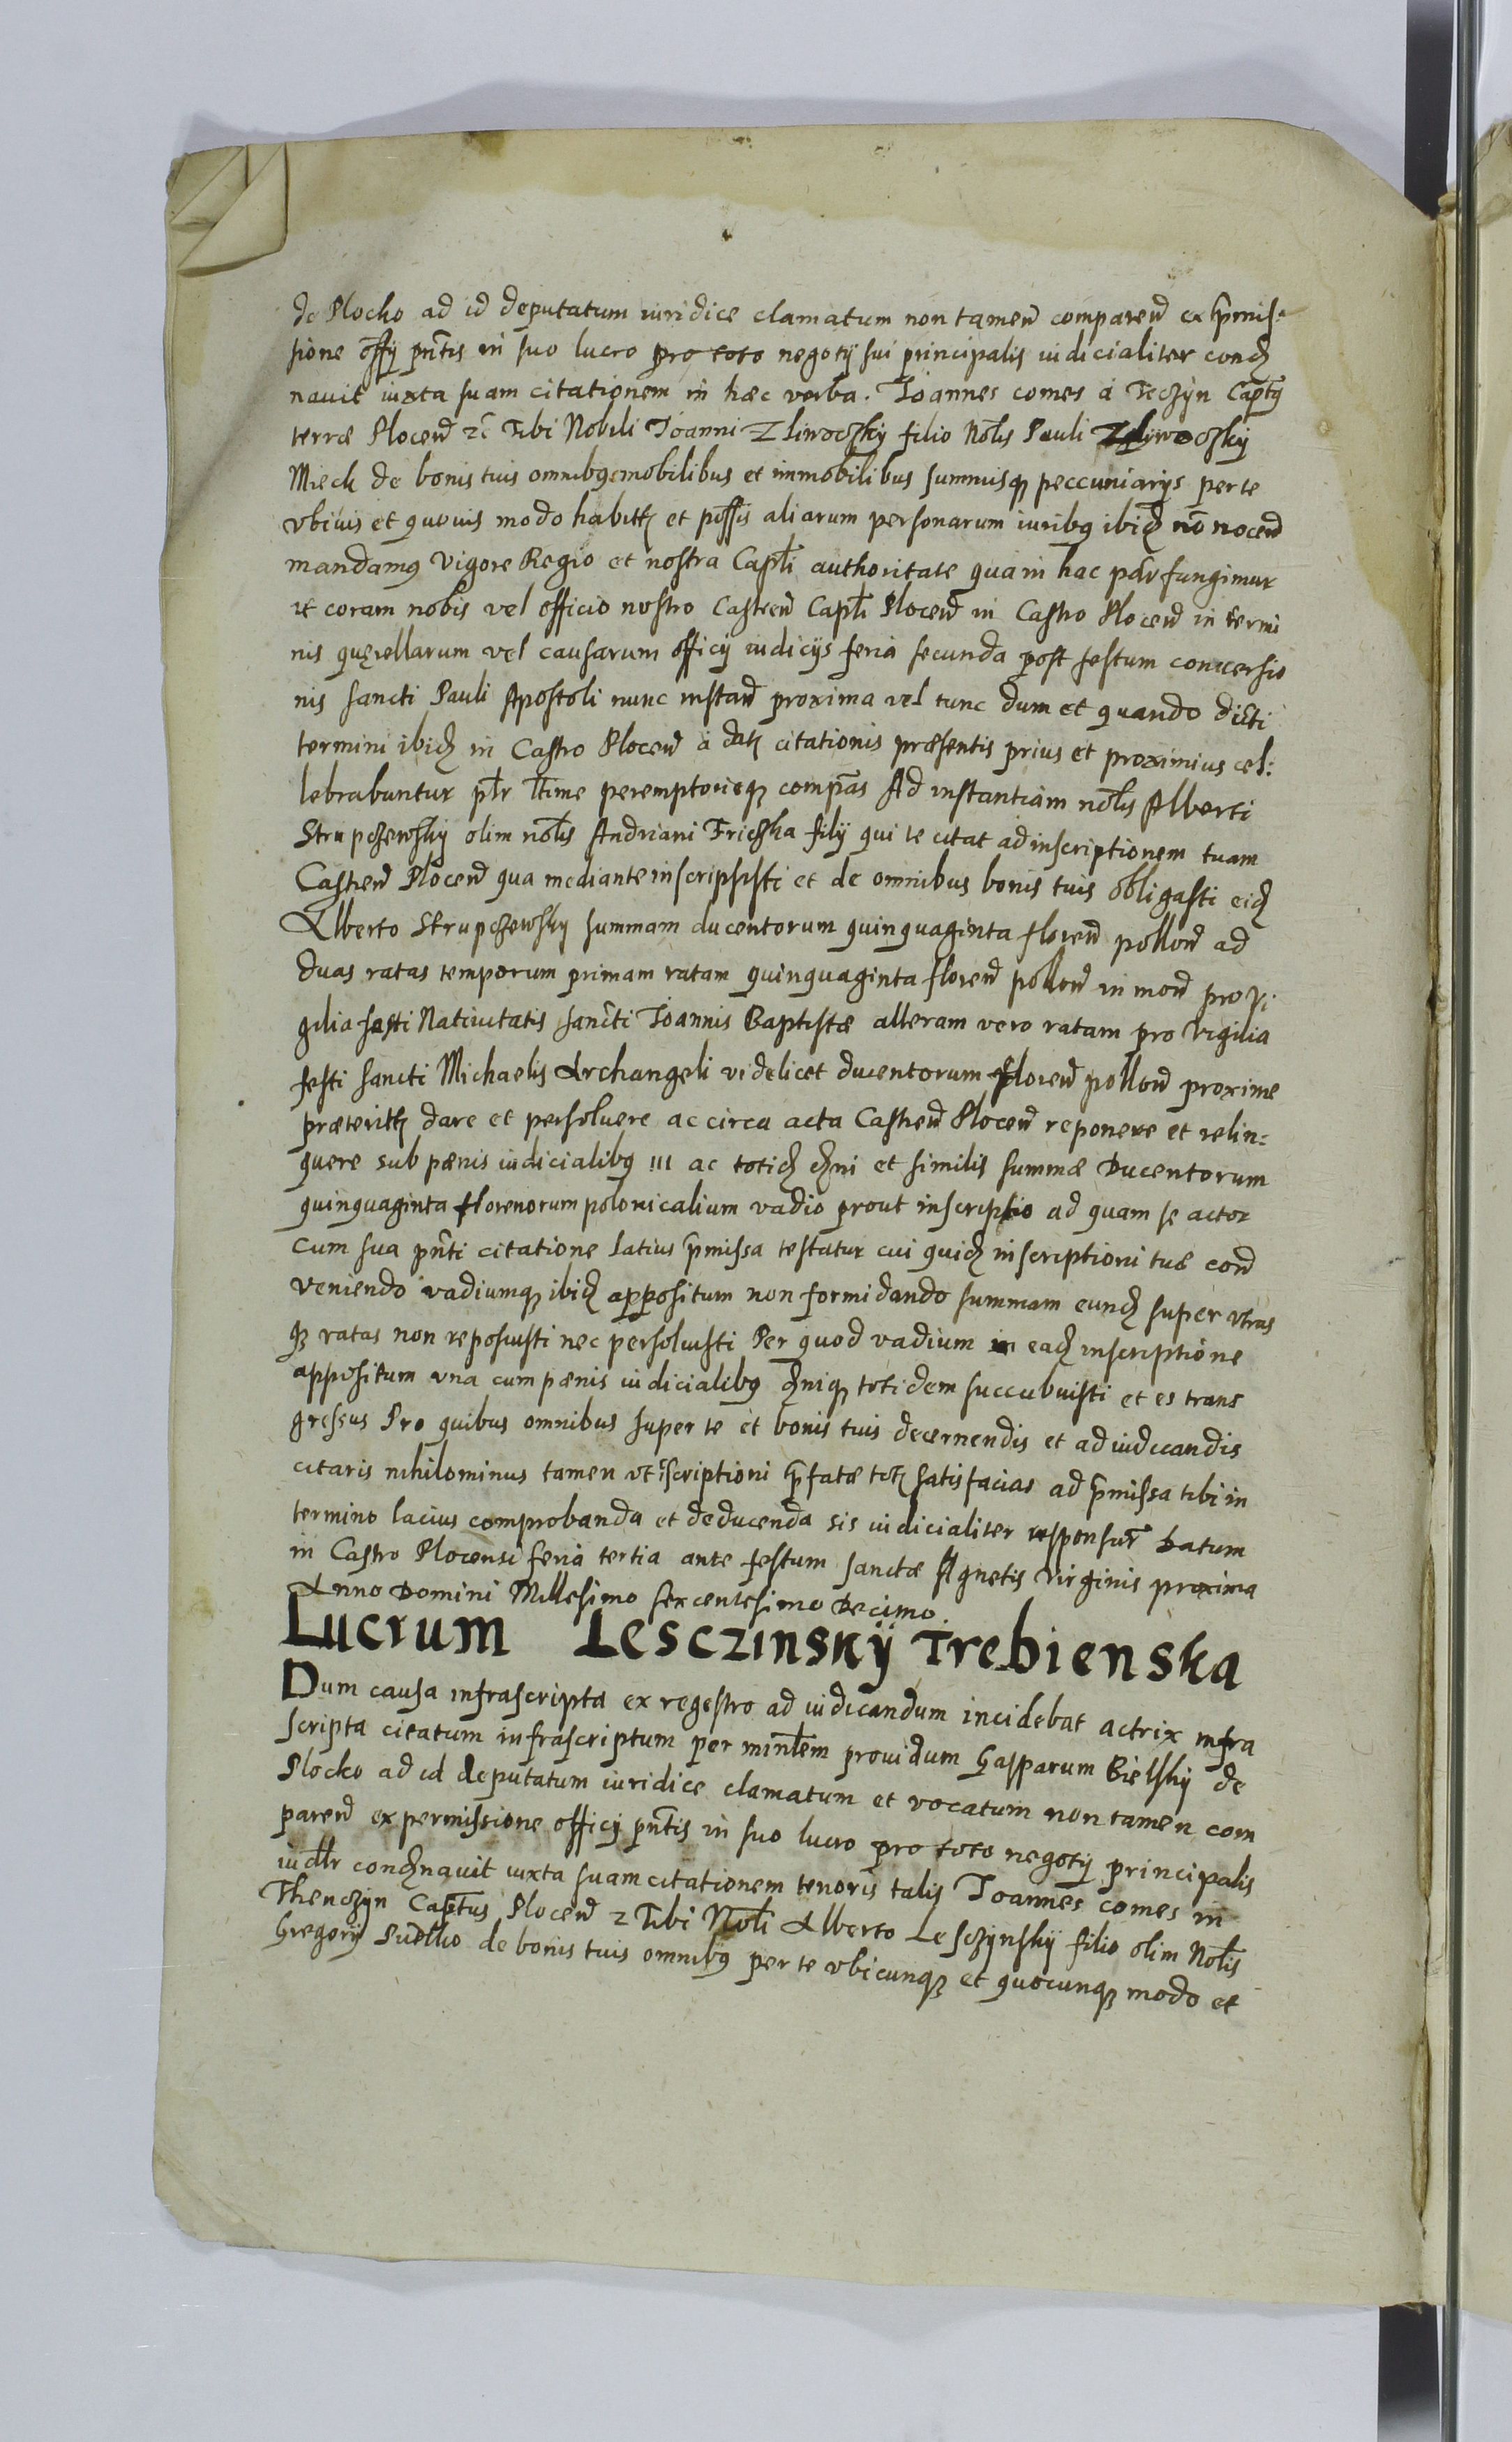 de Plocko ad id deputatum iuridice clamatum non tamen comparen ex pmis-
sione offy pntis in suo lucro pro toto negoty sui principalis iudicialiter cond
navit iuxta suam citationem in hæc verba. Joannes comes a Teczyn Captg
terræ Plocen zc Tibi Nobili Joanni Zliwoczky filio Nolis Pauli Zliwoczky
Mieck de bonis tuis omnibg mobilibus et immobilibus summisq peccuniarys per te
vbiuis et quouis modo habitt et possis aliarum personarum iuribg ibid no nocen
mandamg Vigore Regio et nostra Capli authoritate qua in hac par fungimur
vt coram nobis vel officio nostro Castren Capli Plocen in Castro Plocen in termi
nis quęrellarum vel causarum officy iudicys feria secunda post festum conuersio
nis sancti Pauli Apostoli nunc instan proxima vel tunc dum et quando dicti
termini ibid in Castro Plocen a dat citationis præsentis prius et proximius cel:
lebrabuntur plr ltime peremptorieq compas Ad instantiam nolis Alberti
Strupczewsky olim nolis Andriani Friczka fily qui te citat ad inscriptionem tuam
Castren Plocen qua mediante inscripsisti et de omnibus bonis tuis obligasti eid
Alberto Strupczewsky summam ducentorum quinquaginta floren pollon ad
duas ratas temporum primam ratam quinquaginta floren pollon in mon pro Vi
gilia festi Natiuitatis sancti Joannis Baptistæ alteram vero ratam pro Vigilia
festi sancti Michaelis Archangeli videlicet ducentorum floren pollon proxime
præteritt dare et persoluere ac circa acta Castren Plocen reponere et relin=
quere sub pænis iudicialibg III ac totid dni et similis summæ Ducentorum
quinquaginta florenorum polonicalium vadio prout inscriptio ad quam se actor
cum sua pnti citatione latius pmissa testatur cui quid inscriptioni tuæ con
veniendo vadiumq ibid appositum non formidando summam eund super vtras
q ratas non reposuisti nec persoluisti Per quod vadium in ead inscriptione
appositum vna cum pænis iudicialibg dniq totidem succubuisti et es trans
gressus Pro quibus omnibus super te et bonis tuis decernendis et adiudicandis
citaris nihilominus tamen vt inscriptioni pfatæ tot satisfacias ad pmissa tibi in
termino lacius comprobanda et deducenda sis iudicialiter responsur Datum
in Castro Plocensi feria tertia ante festum sanctæ Agnetis Virginis proxima
Anno Domini Millesimo sexcentesimo Decimo.
Lucrum Lesczinsky Trebienska
Dum causa infrascripta ex regestro ad iudicandum incidebat actrix infra
scripta citatum infrascriptum per minlem prouidum Gasparum Bielsky de
Plocko ad id deputatum iuridice clamatum et vocatum non tamen com
paren ex permissione officy pntis in suo lucro pro toto negoty principalis
iudlr condnauit iuxta suam citationem tenoris talis Joannes comes in
Thenczyn Captus Plocen z Tibi Noli Alberto Lesczynsky filio olim Nolis
Gregory Pudlko de bonis tuis omnibg per te vbicunq et quocunq modo et